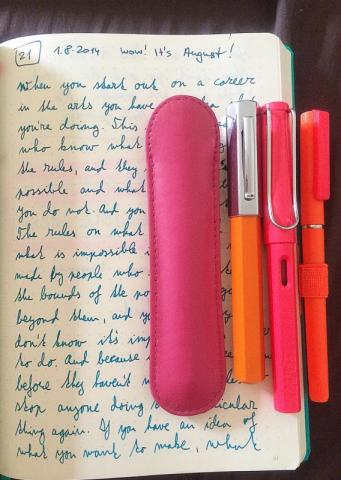 21 1.8.2014 wow! It's August!
When you start out on a career
in the arts you have
you're doing. This
who know what
the rules, and they
possible and what
you do not. And you
The rules on what
what is impossible
made by people who
the bounds of the po
beyond them, and yo
don't know it's imp
to do. And because
before they haven't m
stop anyone doing icular
thing again. If you have an idea of
what you want to make, what